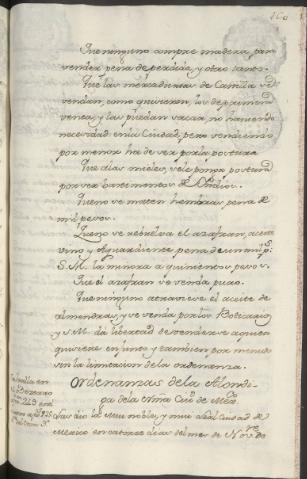 160
Que ninguno compre madera, para
vender, pena de perdida, y otro tanto.
Que las mercadurias de Castilla se
vendan, como quisieren, los de primera
venta, y las puedan sacar no haviendo
necesidad en la Ciudad, pero vendiendo
por menor ha de ser por la postura
Que a las mieles, se le ponga postura
por ser bastimentos
Que no se maten hembras, pena de
mil pesos.
Que no se rebuelva el azafran, aceite
vino y Aguardiente pena de un mil ps.
S. M. la minora a quinientos pesos.
Que el azafran se venda puro.
Que ninguno atraviese el aceite de
almendras, y se venda por los Boticarios
y S. M. da libertad de venderse a quien
quisiere en junto y tambien por menor
sin la limitacion de la ordenanza.
Ordenanzas de la Alondi-
ga de la Ciud. de Mex.
Las dio la muy noble, y muy Leal Ciudad de
Mexico en catorce dias del mes de Novre. de